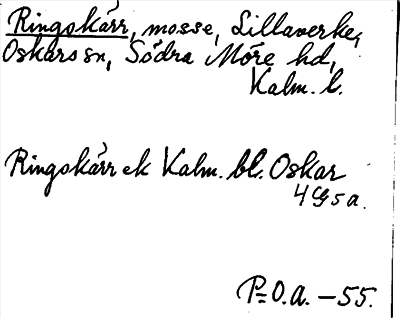 Ringskärr, mosse, Lillaverke,
Oskars sn, Södra Möre hd,
Kalm. l.
Ringskärr ek Kalm. bl. Oskar
4G5a.
P=O.A. -55.